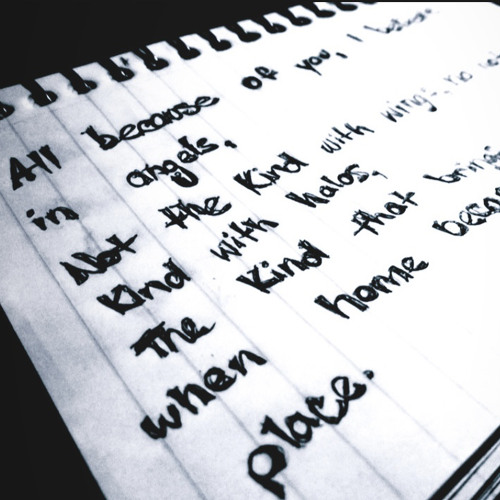 All because of you, I believe
in angels.
Not the kind with wings. no not
kind with halos,
The kind that brings
when home becomes
place.